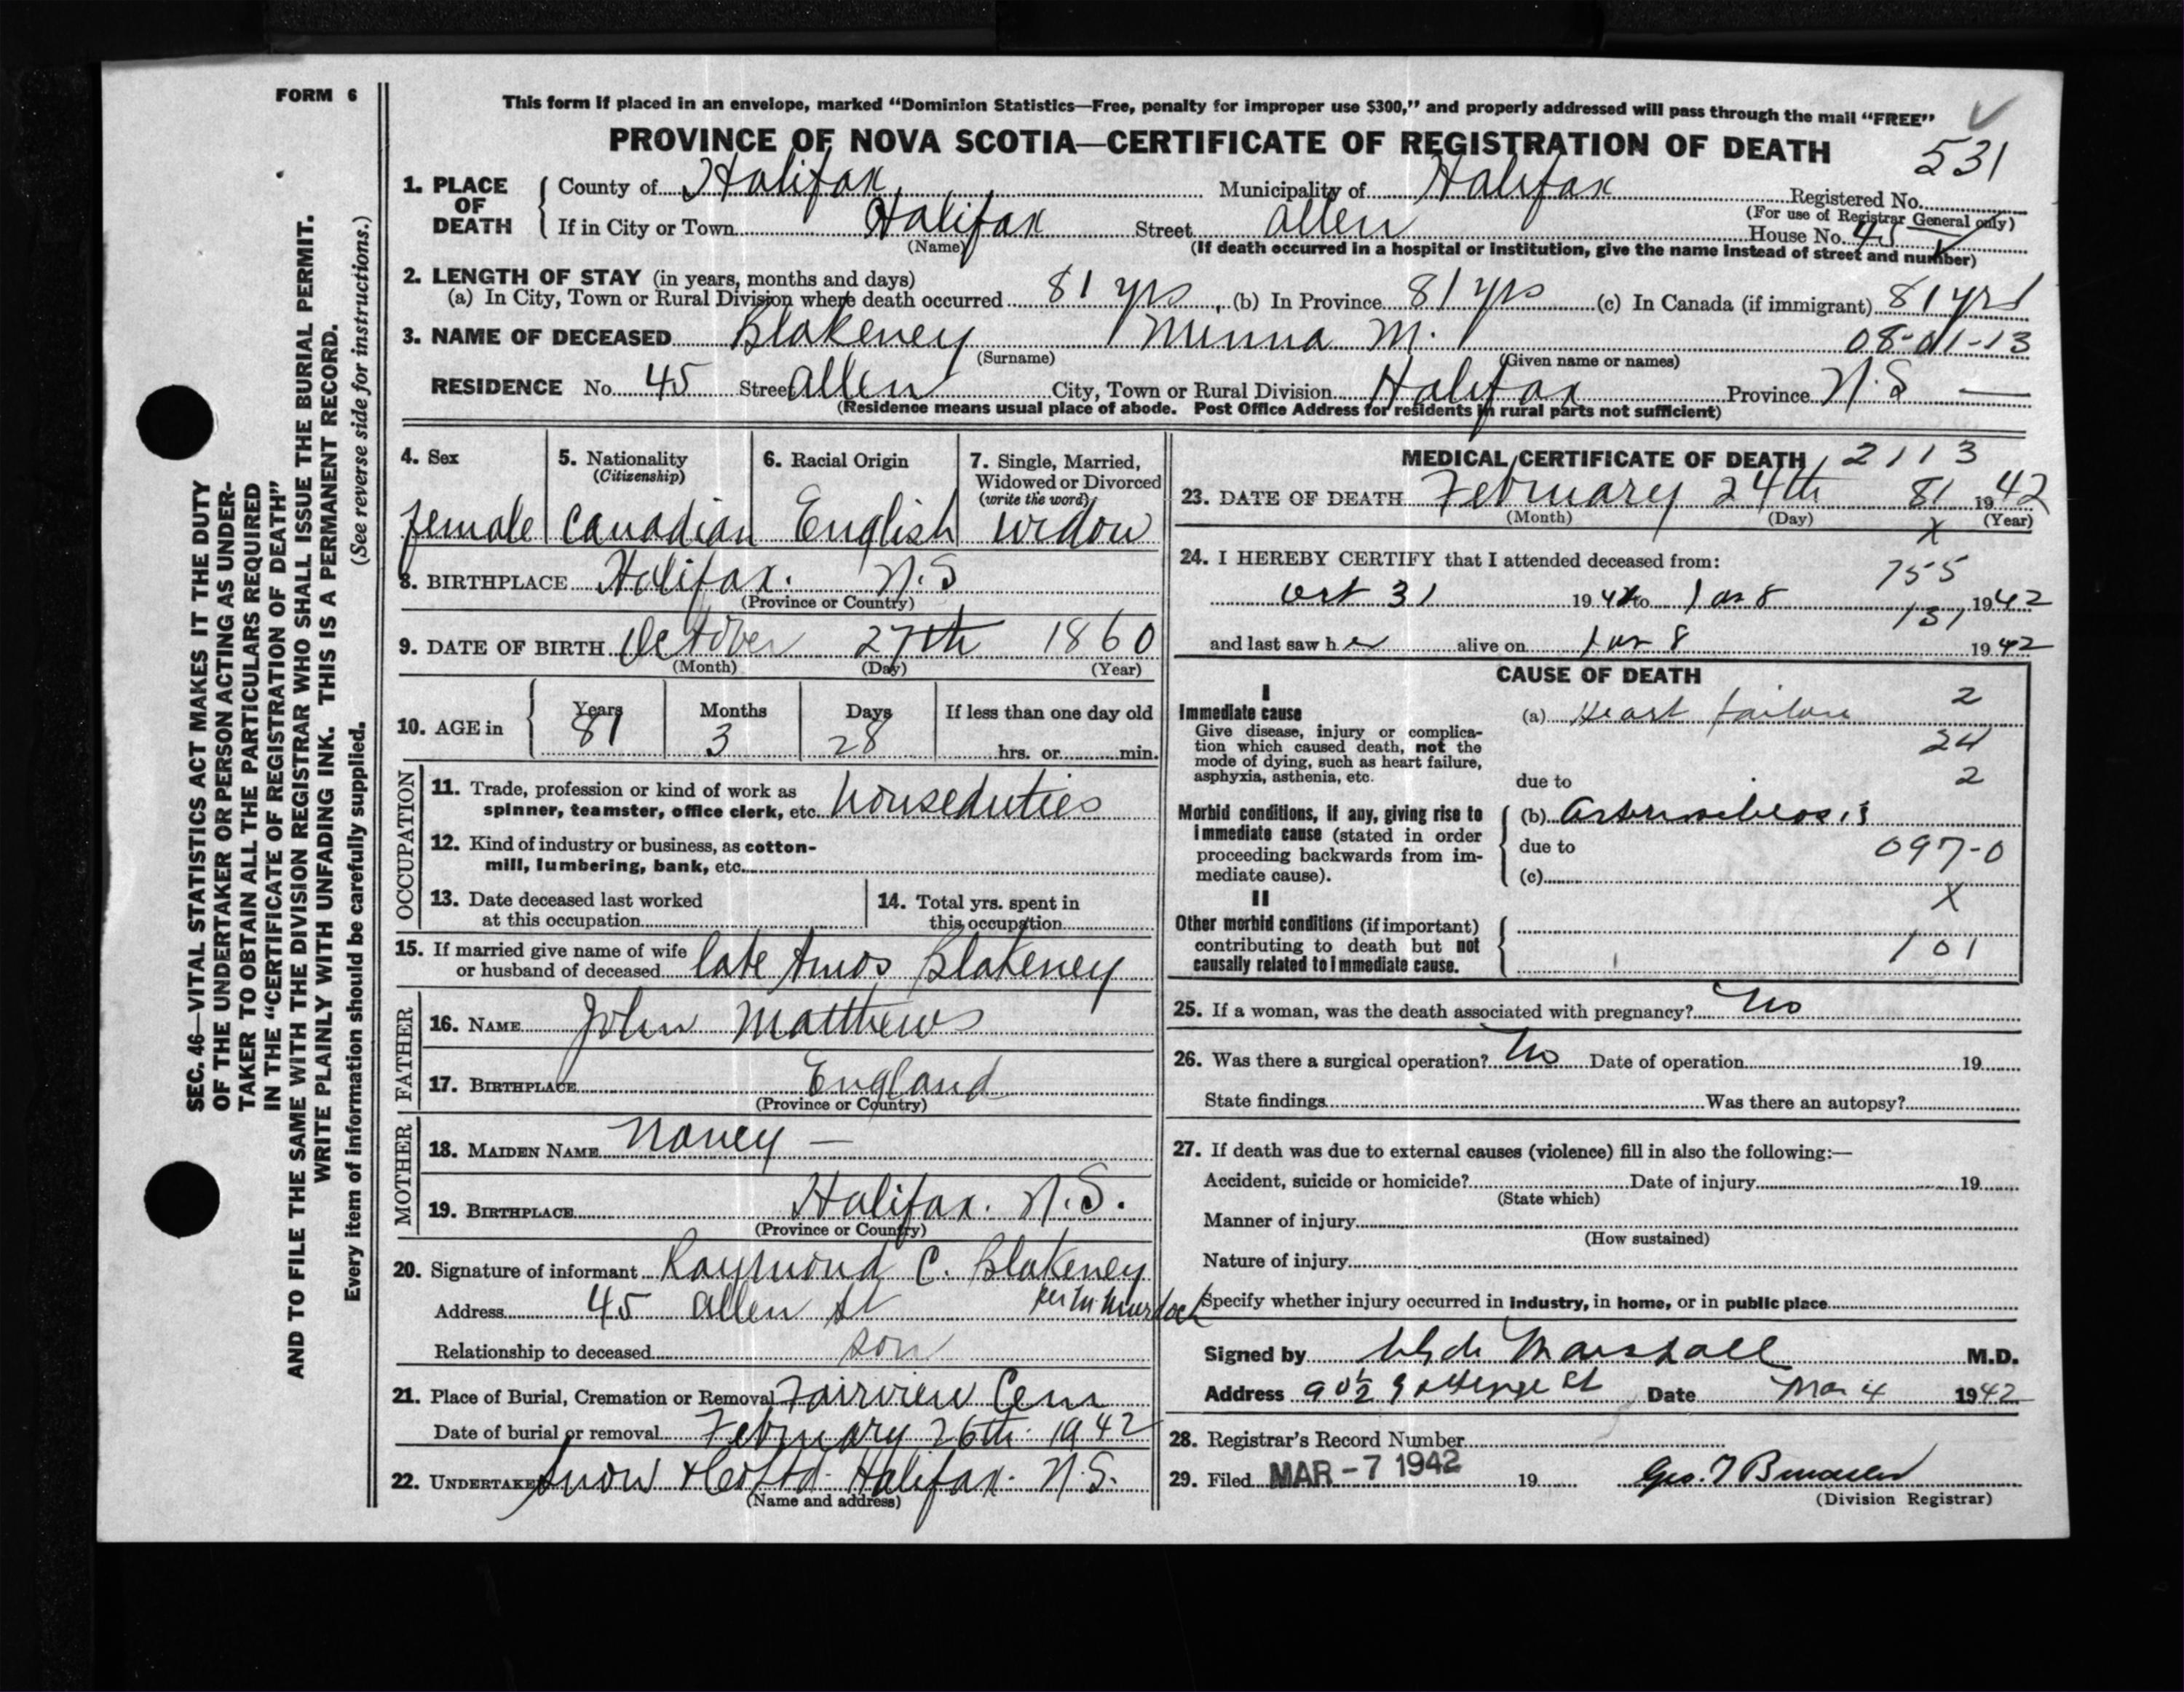 FORM 6
This form if placed in an envelope, marked “Dominion Statistics—Free, penalty for improper use $300,” and properly addressed will pass through the mail “FREE”
PROVINCE OF NOVA SCOTIA—CERTIFICATE OF REGISTRATION OF DEATH
531
1. PLACE OF DEATH
County of Halifax Municipality of Halifax Registered No.
(For use of Registrar General only)
If in City or Town Halifax Street Allen House No. 45
(Name) (If death occurred in a hospital or institution, give the name instead of street and number)
2. LENGTH OF STAY (in years, months and days)
(a) In City, Town or Rural Division where death occurred 81 yrs (b) In Province 81 yrs (c) In Canada (if immigrant) 81 yrs
3. NAME OF DECEASED Blakeney Minna M. 08-01-13
(Surname) (Given name or names)
RESIDENCE No. 45 Street Allen City, Town or Rural Division Halifax Province N.S —
(Residence means usual place of abode. Post Office Address for residents in rural parts not sufficient)
4. Sex
female
5. Nationality
(Citizenship)
Canadian
6. Racial Origin
English
7. Single, Married,
Widowed or Divorced
(write the word)
widow
8. BIRTHPLACE Halifax. N.S
(Province or Country)
9. DATE OF BIRTH October 27th 1860
(Month) (Day) (Year)
10. AGE in
Years Months Days If less than one day old
81 3 28 hrs. or min.
OCCUPATION
11. Trade, profession or kind of work as
spinner, teamster, office clerk, etc. houseduties
12. Kind of industry or business, as cotton-
mill, lumbering, bank, etc.
13. Date deceased last worked
at this occupation
14. Total yrs. spent in
this occupation
15. If married give name of wife
or husband of deceased late Amos Blakeney
FATHER
16. NAME John Matthews
17. BIRTHPLACE England
(Province or Country)
MOTHER
18. MAIDEN NAME Nancy —
19. BIRTHPLACE Halifax. N.S.
(Province or Country)
20. Signature of informant Raymond C. Blakeney
Address 45 Allen St per M Murdock
Relationship to deceased son
21. Place of Burial, Cremation or Removal Fairview Cem
Date of burial or removal February 26th 1942
22. UNDERTAKER Snow & Co Ltd. Halifax. N.S.
(Name and address)
MEDICAL CERTIFICATE OF DEATH 2113
23. DATE OF DEATH February 24th 81 1942
(Month) (Day) (Year)
X
24. I HEREBY CERTIFY that I attended deceased from:
755
Oct 31 19 to Jan 8 1942
131
and last saw her alive on Jan 8 1942
CAUSE OF DEATH
I
Immediate cause
Give disease, injury or complica-
tion which caused death, not the
mode of dying, such as heart failure,
asphyxia, asthenia, etc.
(a) Heart failure 2
24
due to 2
Morbid conditions, if any, giving rise to
immediate cause (stated in order
proceeding backwards from im-
mediate cause).
(b) Arteriosclerosis
due to 097-0
(c)
X
II
Other morbid conditions (if important)
contributing to death but not
causally related to immediate cause.
101
25. If a woman, was the death associated with pregnancy? No
26. Was there a surgical operation? No Date of operation 19
State findings Was there an autopsy?
27. If death was due to external causes (violence) fill in also the following:—
Accident, suicide or homicide? Date of injury 19
(State which)
Manner of injury
(How sustained)
Nature of injury
Specify whether injury occurred in industry, in home, or in public place
Signed by Clyde Marshall M.D.
Address 90½ Gottingen St Date Mar 4 1942
28. Registrar's Record Number
29. Filed MAR - 7 1942 19
(Division Registrar)
SEC. 46—VITAL STATISTICS ACT MAKES IT THE DUTY
OF THE UNDERTAKER OR PERSON ACTING AS UNDER-
TAKER TO OBTAIN ALL THE PARTICULARS REQUIRED
IN THE “CERTIFICATE OF REGISTRATION OF DEATH”
AND TO FILE THE SAME WITH THE DIVISION REGISTRAR WHO SHALL ISSUE THE BURIAL PERMIT.
WRITE PLAINLY WITH UNFADING INK. THIS IS A PERMANENT RECORD.
Every item of information should be carefully supplied. (See reverse side for instructions.)